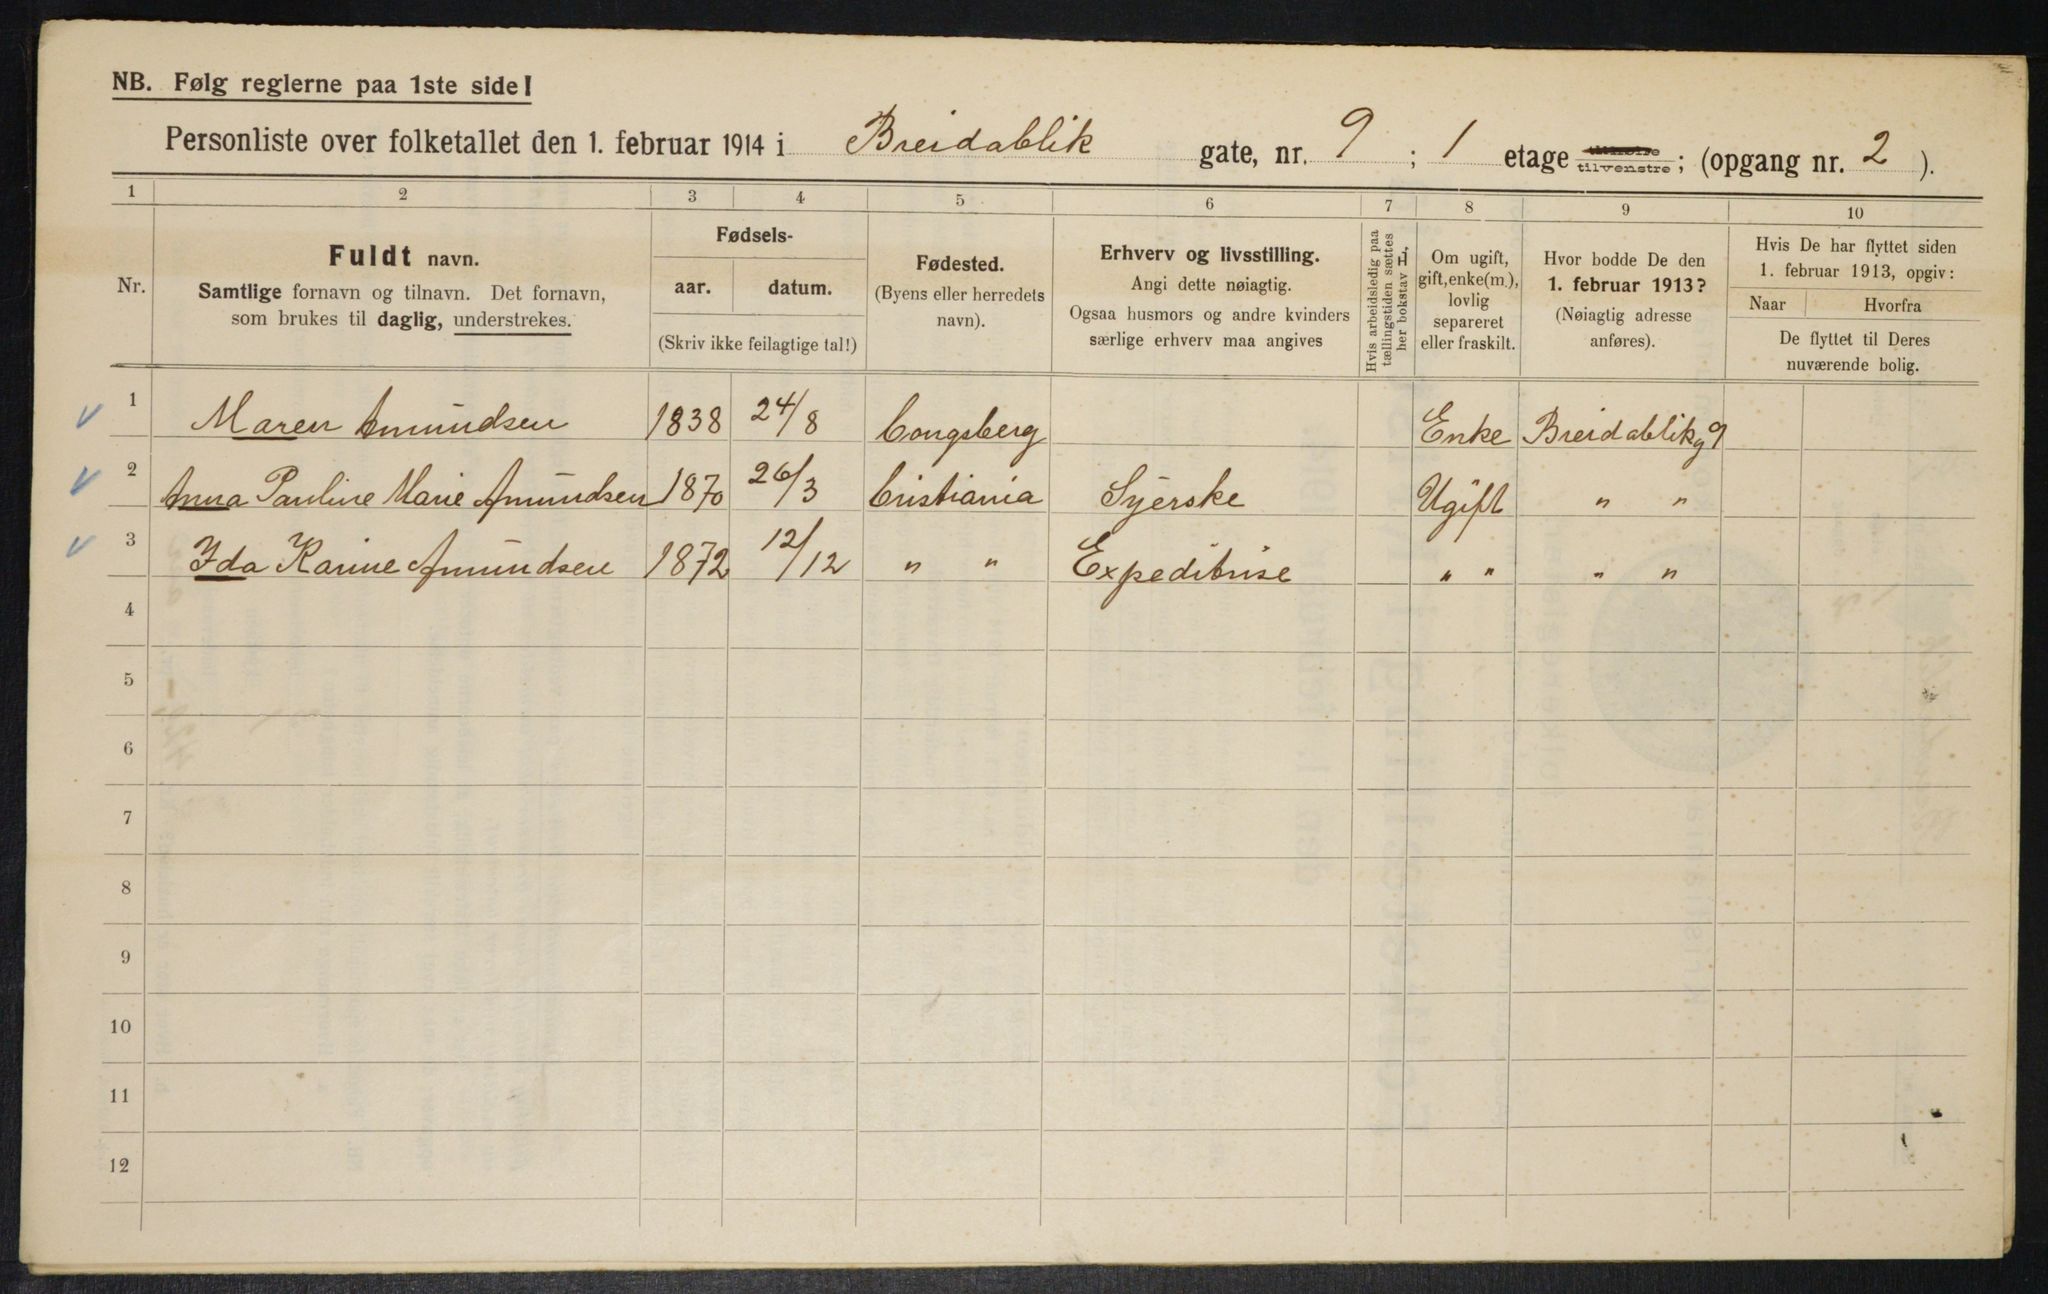 NB. Følg reglerne paa 1ste side!
Personliste over folketallet den 1. februar 1914 i Breidablik gate, nr. 9 ; 1 etage tilvenstre ; (opgang nr. 2 ).
1 2 3 4 5 6 7 8 9 10
Nr.
Fuldt navn.
Samtlige fornavn og tilnavn. Det fornavn,
som brukes til daglig, understrekes.
Fødsels-
aar. datum.
(Skriv ikke feilagtige tal!)
Fødested.
(Byens eller herredets
navn).
Erhverv og livsstilling.
Angi dette nøiagtig.
Ogsaa husmors og andre kvinders
særlige erhverv maa angives
Hvis arbeidsledig paa
tællingstiden sættes
her bokstav L,
Om ugift,
gift, enke(m.),
lovlig
separeret
eller fraskilt.
Hvor bodde De den
1. februar 1913?
(Nøiagtig adresse
anføres).
Hvis De har flyttet siden
1. februar 1913, opgiv:
Naar Hvorfra
De flyttet til Deres
nuværende bolig.
1 Maren Amundsen 1838 24/8 Congsberg Enke Breidablikg 9
2 Anna Pauline Marie Amundsen 1870 26/3 Cristiania Syerske Ugift " "
3 Ida Karine Amundsen 1872 12/12 " " Expeditrise " " " "
4
5
6
7
8
9
10
11
12